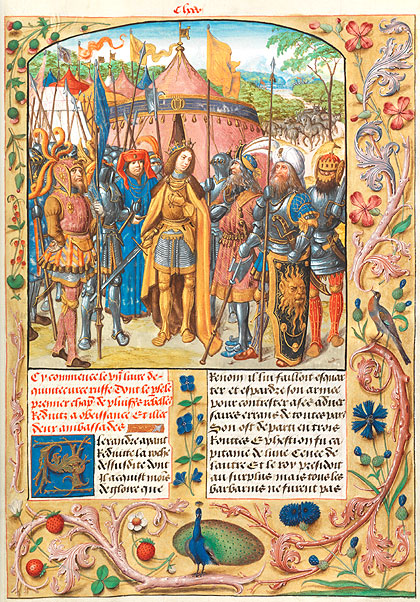 Cy commence le viij livre de
quinte curce ruffe Dont le
premier chap de pluiss rebelles
Reduitz a obeissance Et illec
deux ambassades
Alexandre ayant
Reduitte la roche
dessusdite dont
il acquist mois
de gloire que
Renom il lui failloit esquar
ter et espardre son armee
pour contrester a ses aduer
saires errans de toutes pars
Son ost departi en trois
Routes Ephestion fu ca
pitaine de lune Cene de
lautre Et le roy presidoit
au surplus mais tous les
barbarins ne furent pas